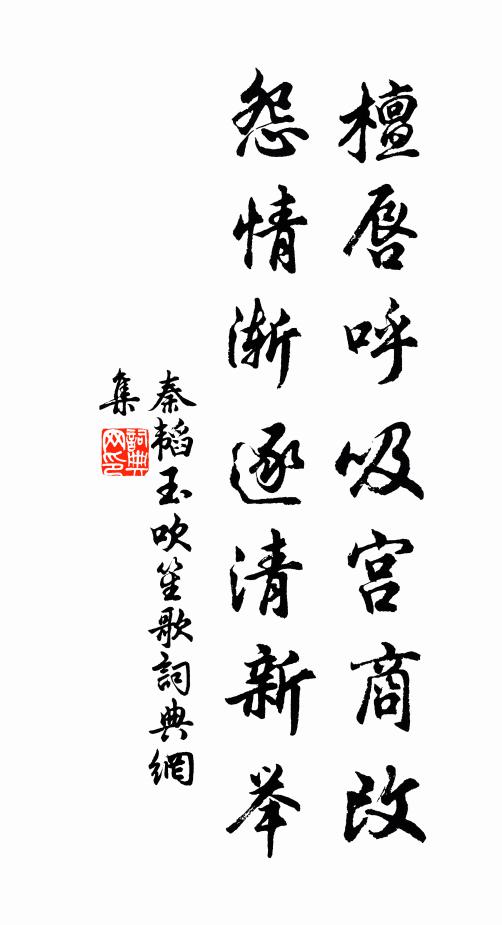 檀唇呼吸宫商改
怨情渐逐清新举
秦韬玉吹笙歌詞典網
集
詞典网印